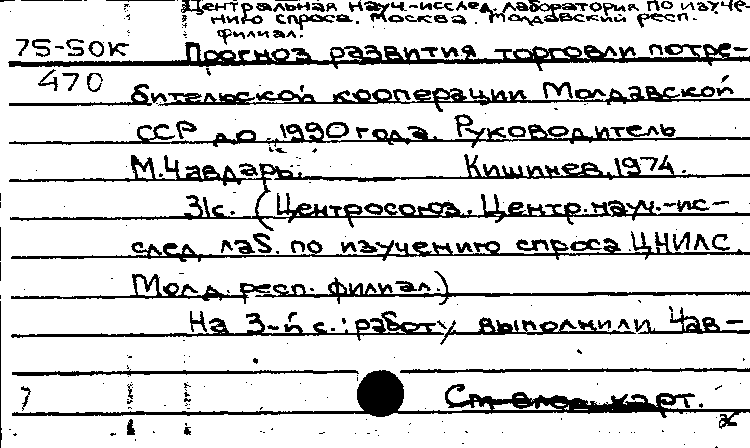 Центральная науч.-исслед. лаборатория по изуче-
нию спроса. Москва. Молдавский респ.
филиал.
75-50к Прогноз развития торговли потре-
470
бительской кооперации Молдавской
ССР до 1990 года. Руководитель
М.Чавдарь. Кишинев, 1974.
31с. (Центросоюз. Центр. науч.-ис-
след. лаб. по изучению спроса ЦНИЛС.
Молд. респ. филиал.)
На 3-й с.: работу выполнили Чав-
7 См. след. карт.